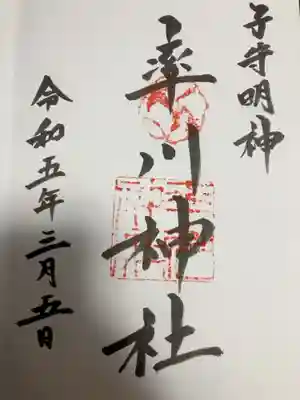 子守明神
率川神社
令和五年三月五日